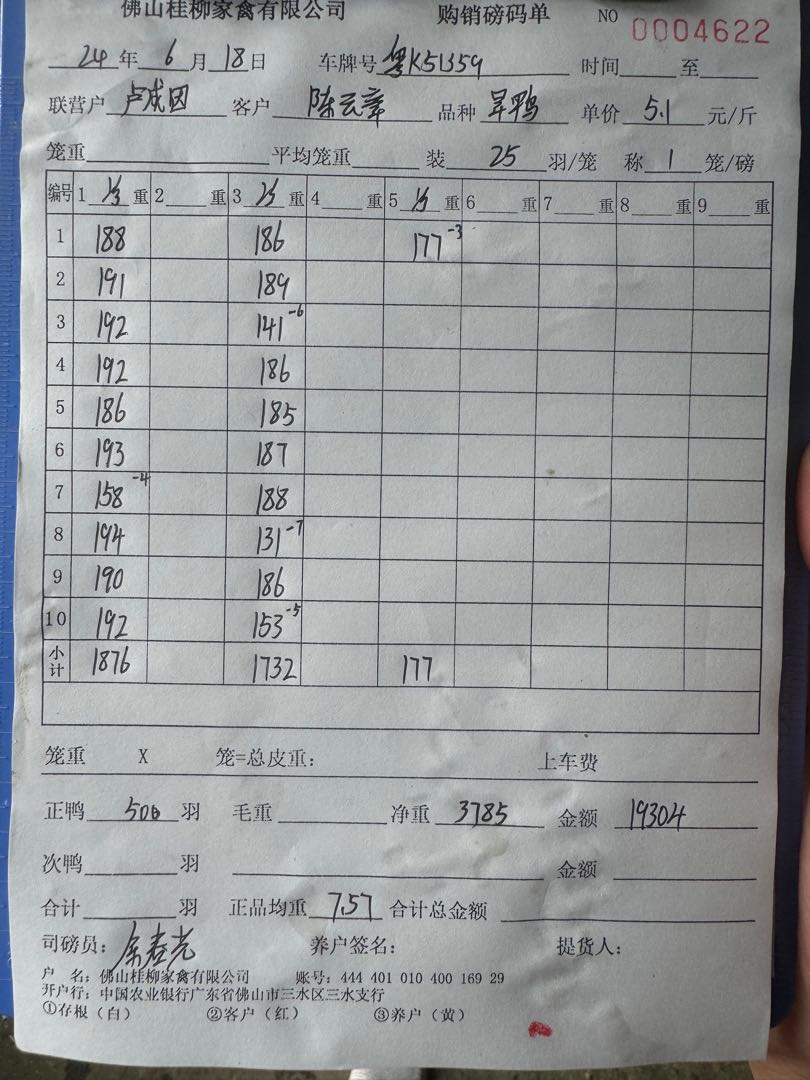 佛山桂柳家禽有限公司 购销磅码单 NO 0004622
24年6月18日 车牌号粤K51359 时间 至
联营户 卢成因 客户 陈云章 品种 旱鸭 单价 5.1 元/斤
笼重 平均笼重 装 25 羽/笼 称 1 笼/磅
编号 1 重 2 重 3 重 4 重 5 重 6 重 7 重 8 重 9 重
1 188 186 177-3
2 191 189
3 192 141-6
4 192 186
5 186 185
6 193 187
7 158-4 188
8 194 131-7
9 190 186
10 192 153-5
小计 1876 1732 177
笼重 X 笼=总皮重: 上车费
正鸭 500 羽 毛重 净重 3785 金额 19304
次鸭 羽 金额
合计 羽 正品均重 7.57 合计总金额
司磅员: 养户签名: 提货人:
户 名: 佛山桂柳家禽有限公司 账号: 444 401 010 400 169 29
开户行: 中国农业银行广东省佛山市三水区三水支行
①存根(白) ②客户(红) ③养户(黄)